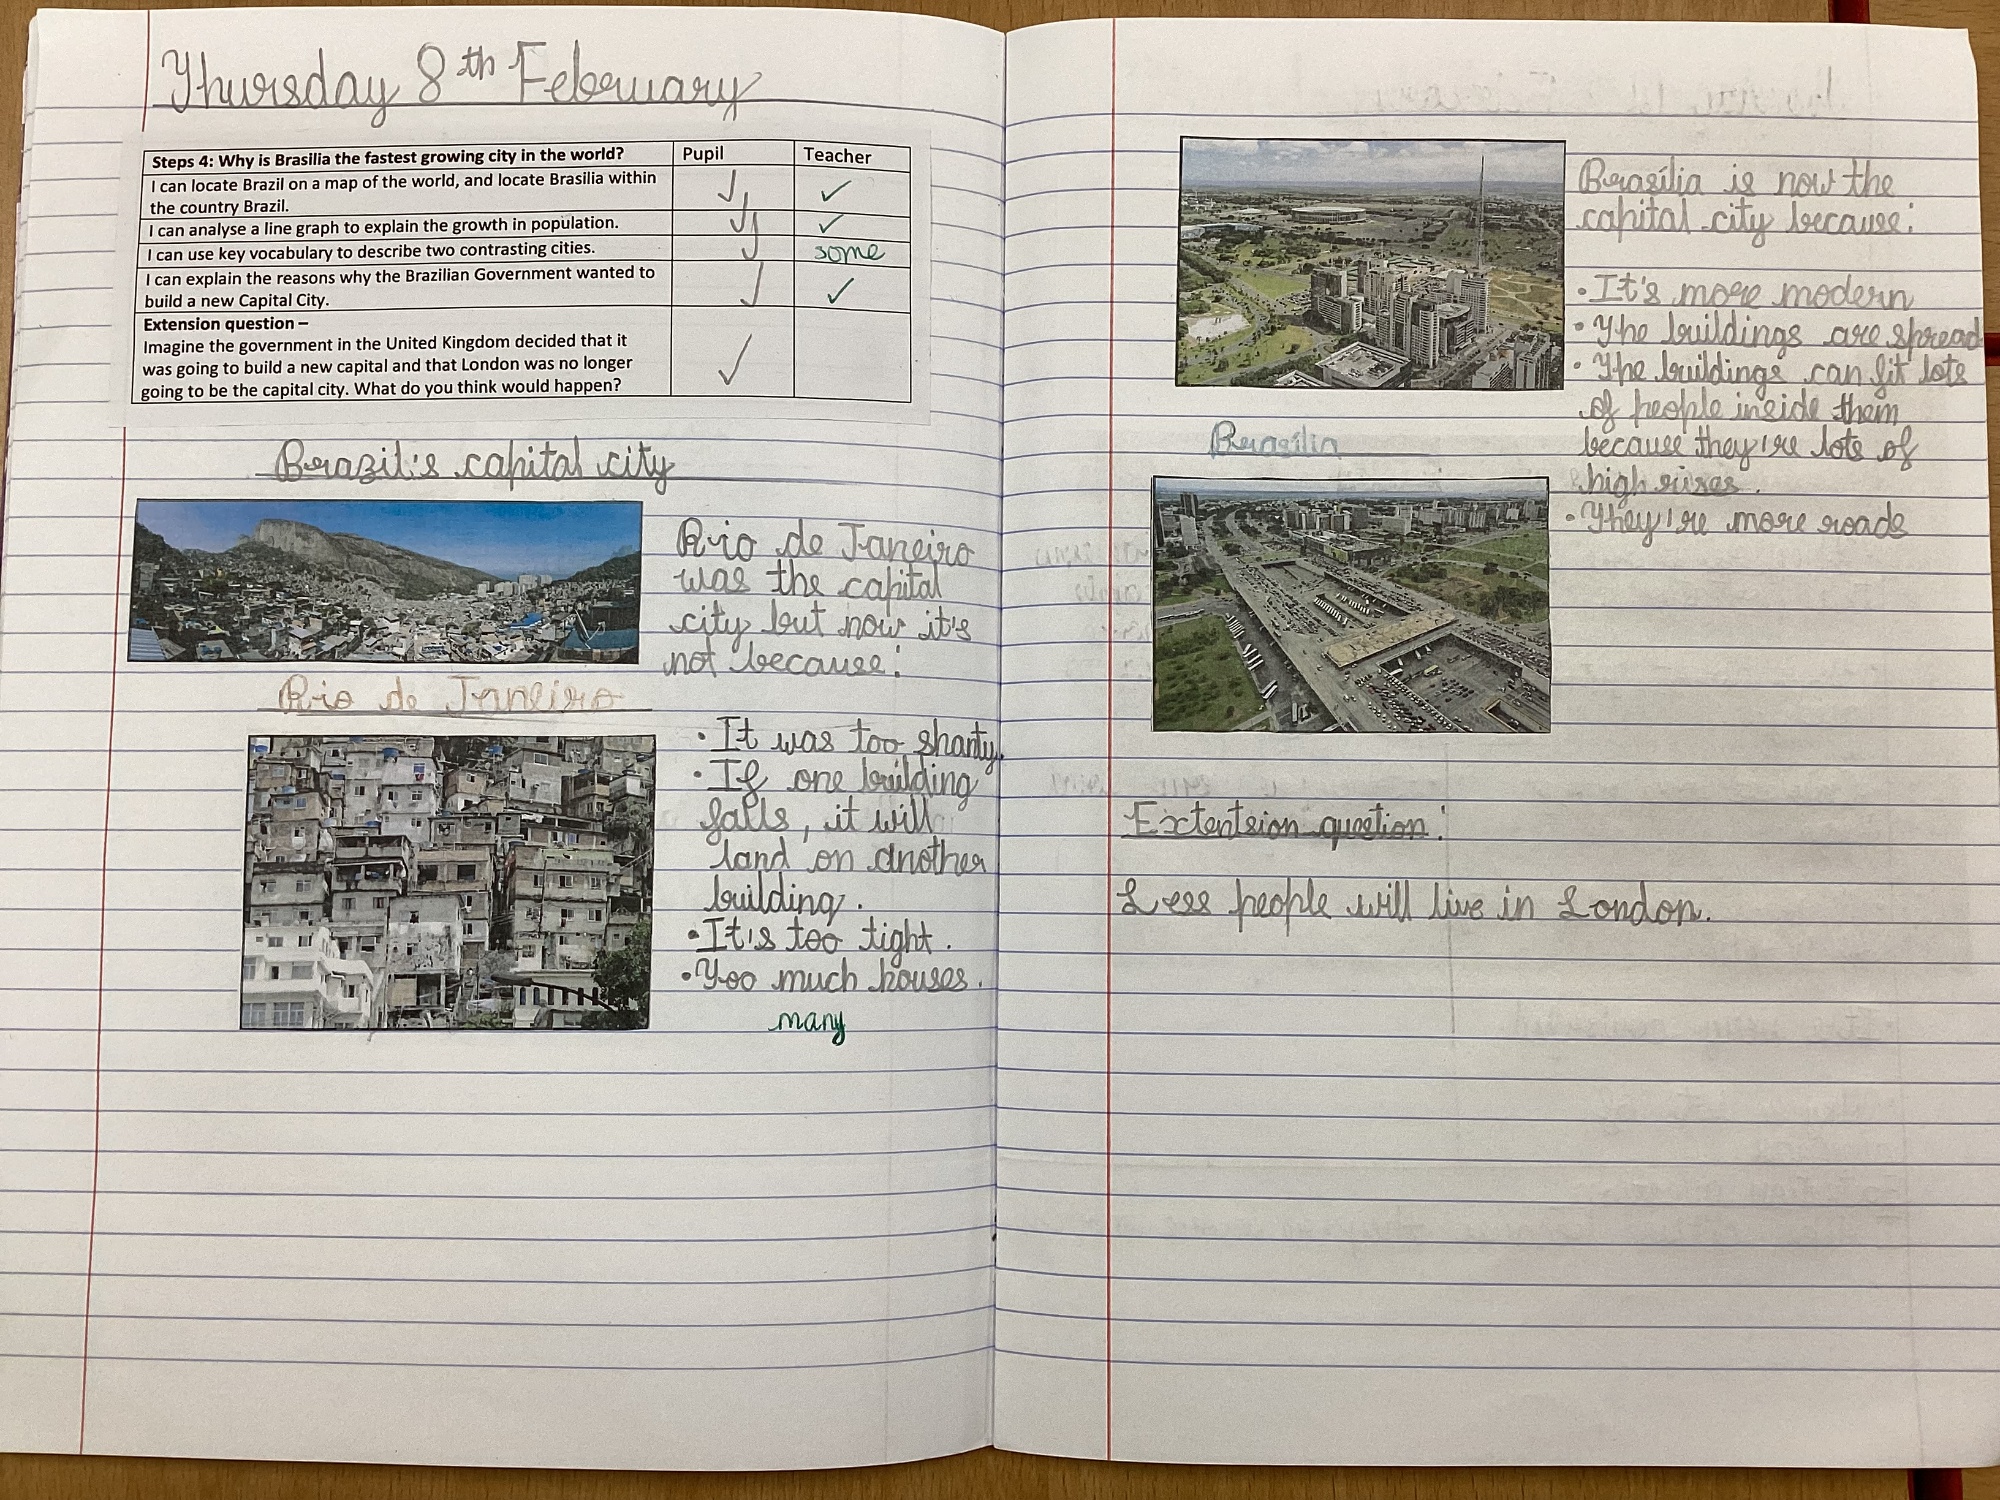 Thursday 8th February
Steps 4: Why is Brasilia the fastest growing city in the world?
Pupil
Teacher
I can locate Brazil on a map of the world, and locate Brasilia within
the country Brazil.
I can analyse a line graph to explain the growth in population.
I can use key vocabulary to describe two contrasting cities.
some
I can explain the reasons why the Brazilian Government wanted to
build a new Capital City.
Extension question –
Imagine the government in the United Kingdom decided that it
was going to build a new capital and that London was no longer
going to be the capital city. What do you think would happen?
Brazil's capital city
Rio de Janeiro
was the capital
city but now it's
not because:
Rio de Janeiro
• It was too shanty.
• If one building
falls, it will
land on another
building.
• It's too tight.
• Too much houses.
many
Brasília is now the
capital city because:
• It's more modern
• The buildings are spread
• The buildings can fit lots
of people inside them
because they're lots of
high rises.
• They're more roads
Brasília
Extentsion question:
Less people will live in London.